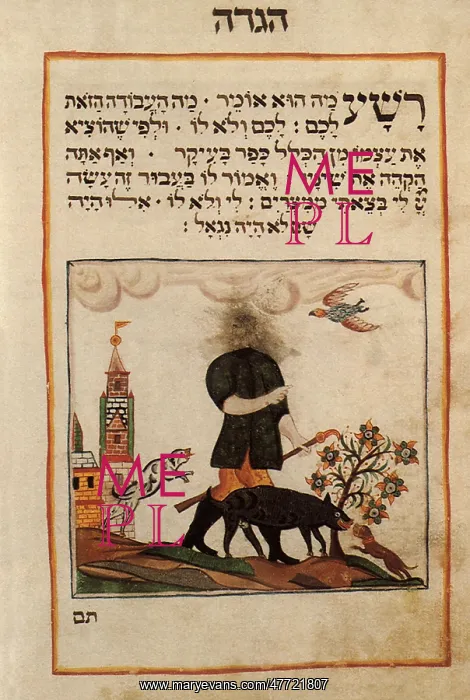 הגדה
רָשָׁע מַה הוּא אוֹמֵר · מָה הָעֲבוֹדָה הַזֹּאת
לָכֶם : לָכֶם וְלֹא לוֹ · וּלְפִי שֶׁהוֹצִיא
אֶת עַצְמוֹ מִן הַכְּלָל כָּפַר בָּעִיקָר · וְאַף אַתָּה
הַקְהֵה אֶת וֶאֱמוֹר לוֹ בַּעֲבוּר זֶה עָשָׂה
לִי בְּצֵאתִי מִמִּצְרַיִם : לִי וְלֹא לוֹ · אִילּוּ הָיָה
לֹא הָיָה נִגְאָל :
ME
PL
ME
PL
תם
www.maryevans.com/47721807